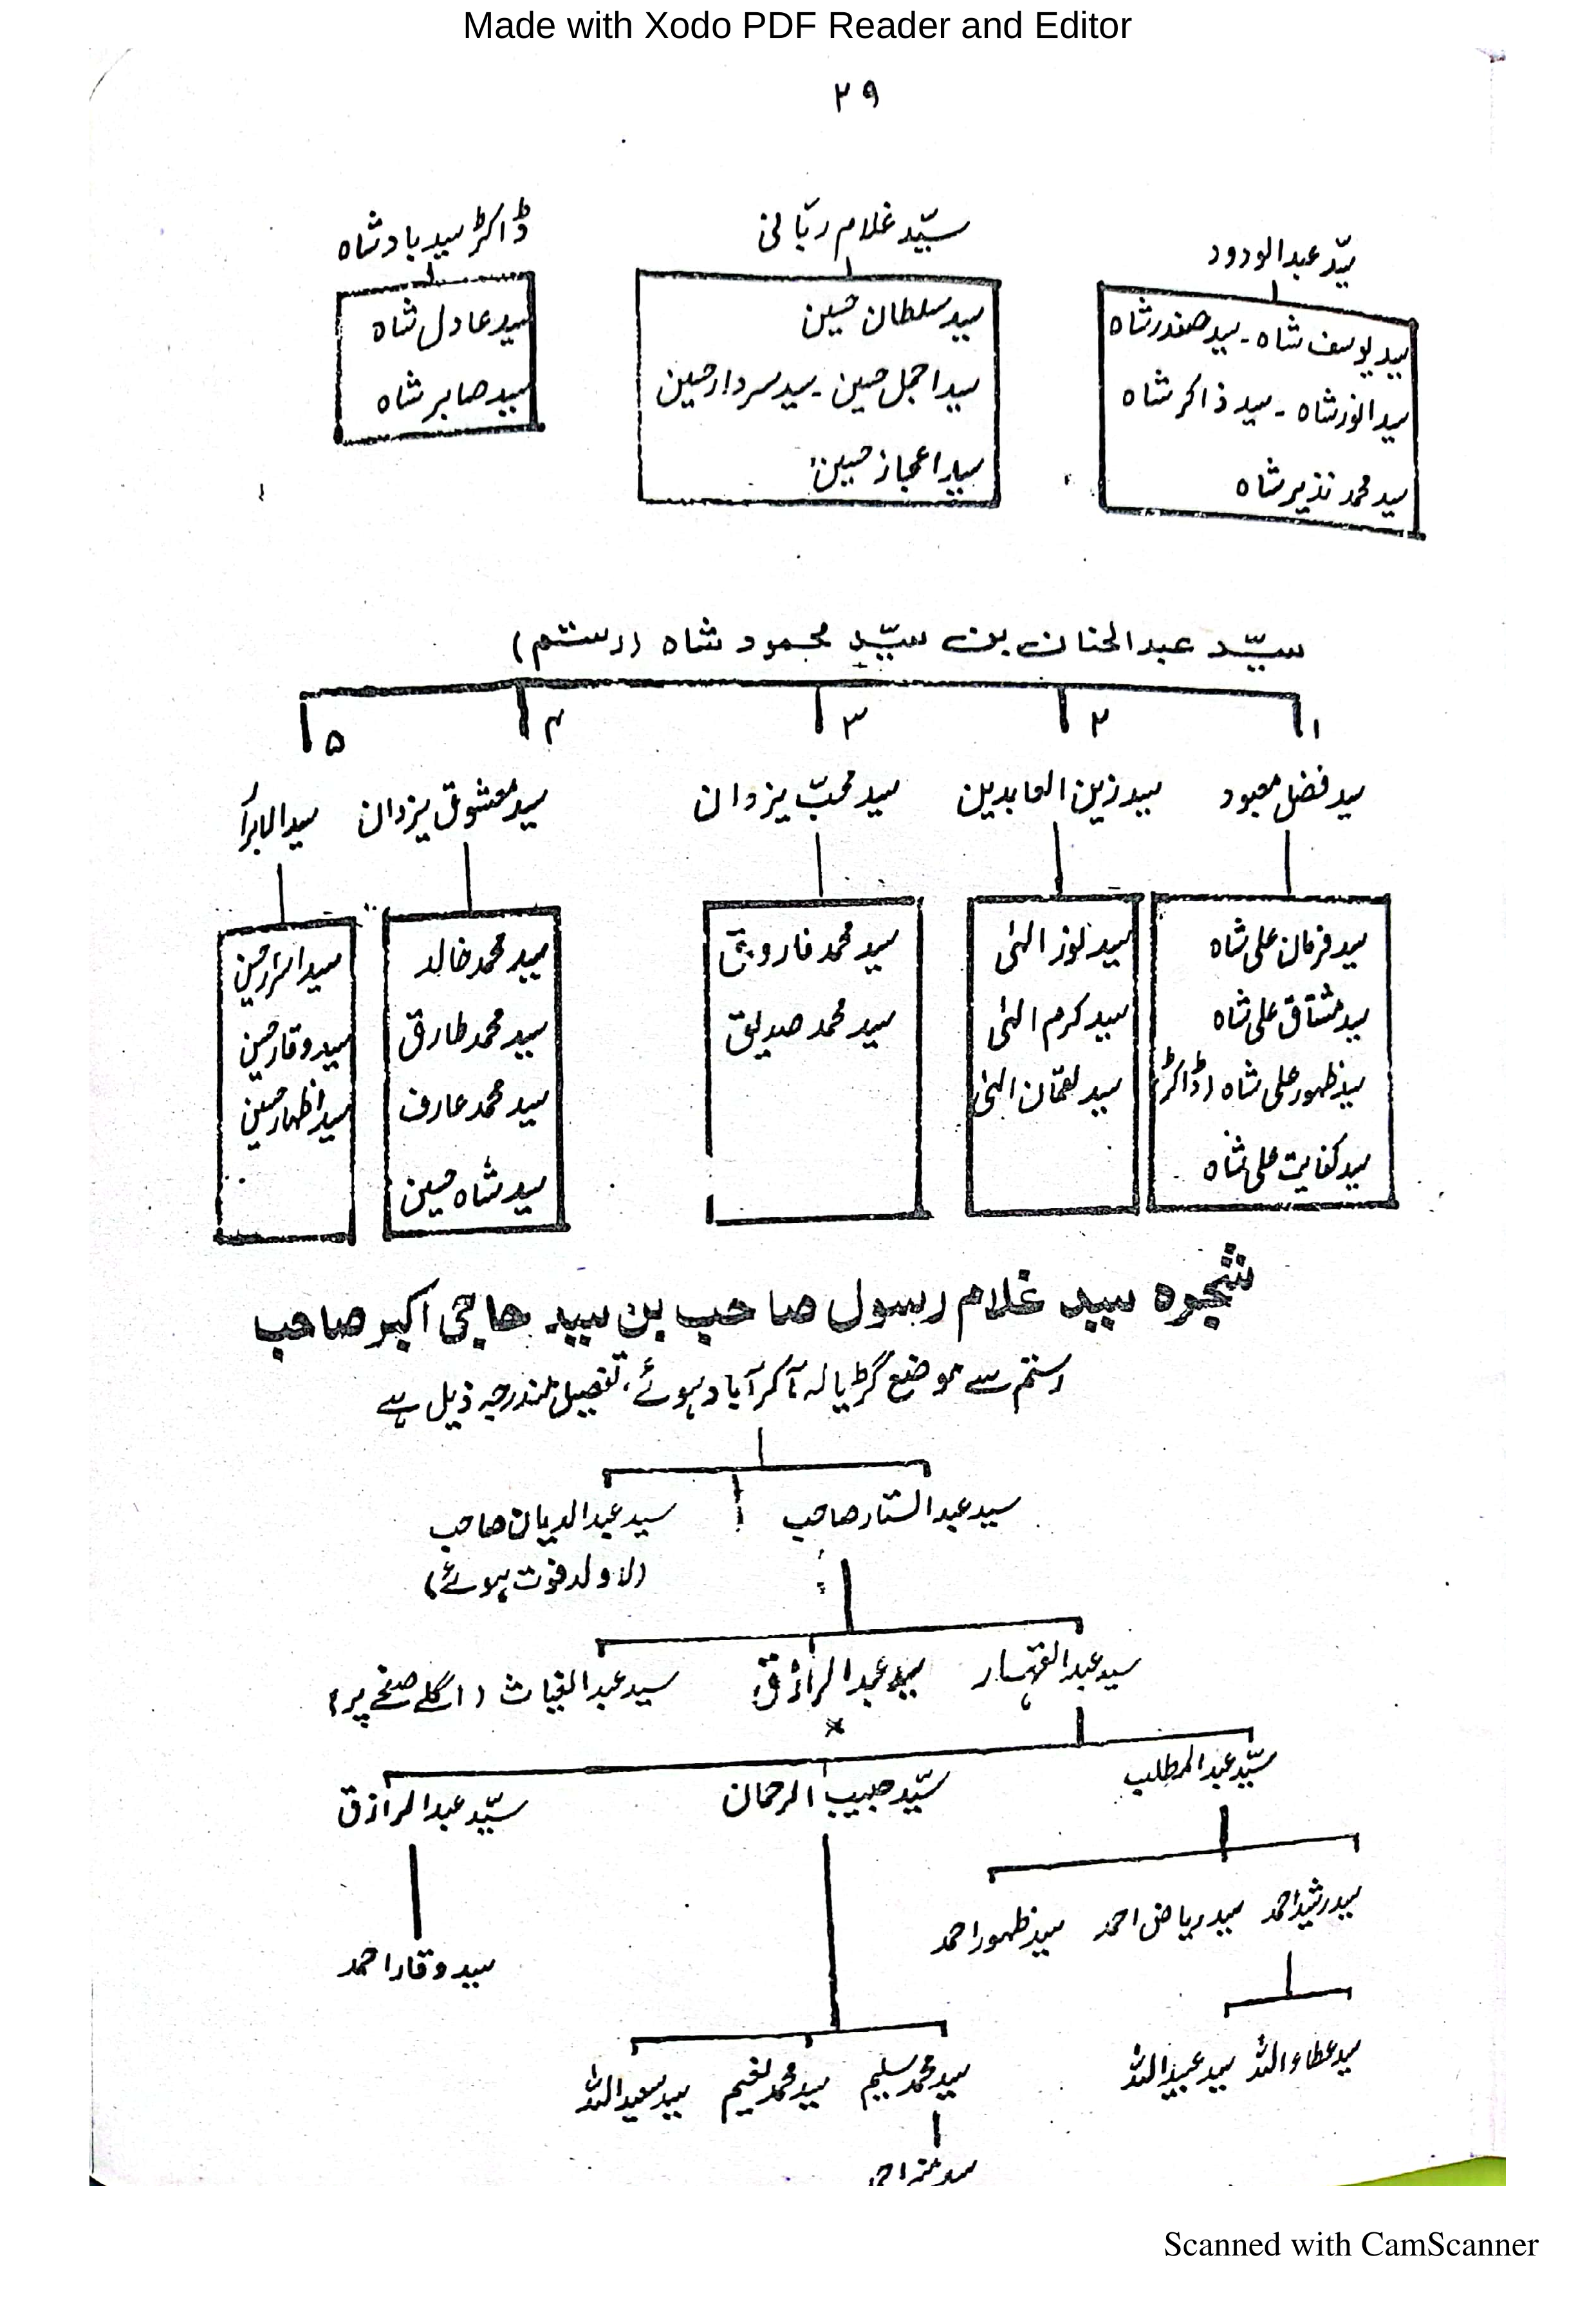 Made with Xodo PDF Reader and Editor
۲۹
سیّد عبدالودود
سید یوسف شاہ - سید صفدر شاہ
سید انور شاہ - سید ذاکر شاہ
سید محمد نذیر شاہ
سیّد غلام ربّانی
سید سلطان حسین
سید اجمل حسین - سید سردار حسین
سید اعجاز حسین
ڈاکٹر سید بادشاہ
سید عادل شاہ
سید صابر شاہ
سیّد عبدالحنان بن سیّد محمود شاہ (رستم)
۱ ۲ ۳ ۴ ۵
سید فضل معبود
سید زین العابدین
سید محبّ یزدان
سید معشوق یزدان
سید
سید فرمان علی شاہ
سید مشتاق علی شاہ
سید ظہور علی شاہ (ڈاکٹر)
سید کفایت علی شاہ
سید نور الہٰی
سید کرم الہٰی
سید لقمان الہٰی
سید محمد فاروق
سید محمد صدیق
سید محمد خالد
سید محمد طارق
سید محمد عارف
سید شاہ حسین
سید اسرار حسین
سید وقار حسین
سید اظہار حسین
شجرہ سید غلام رسول صاحب بن سید حاجی اکبر صاحب
رستم سے موضع گڑیالہ آکر آباد ہوئے، تفصیل مندرجہ ذیل ہے
سید عبدالستار صاحب سید عبدالدیان صاحب
(لاولد فوت ہوئے)
سید عبدالقہار سید عبدالرازق سید عبدالغیاث (اگلے صفحے پر)
سیّد عبدالمطلب سیّد حبیب الرحمان سیّد عبدالرازق
سید رشید احمد سید ریاض احمد سید ظہور احمد
سید وقار احمد
سید عطاء اللہ سید عبید اللہ
سید محمد سلیم سید محمد نعیم سید سعید اللہ
سید
Scanned with CamScanner